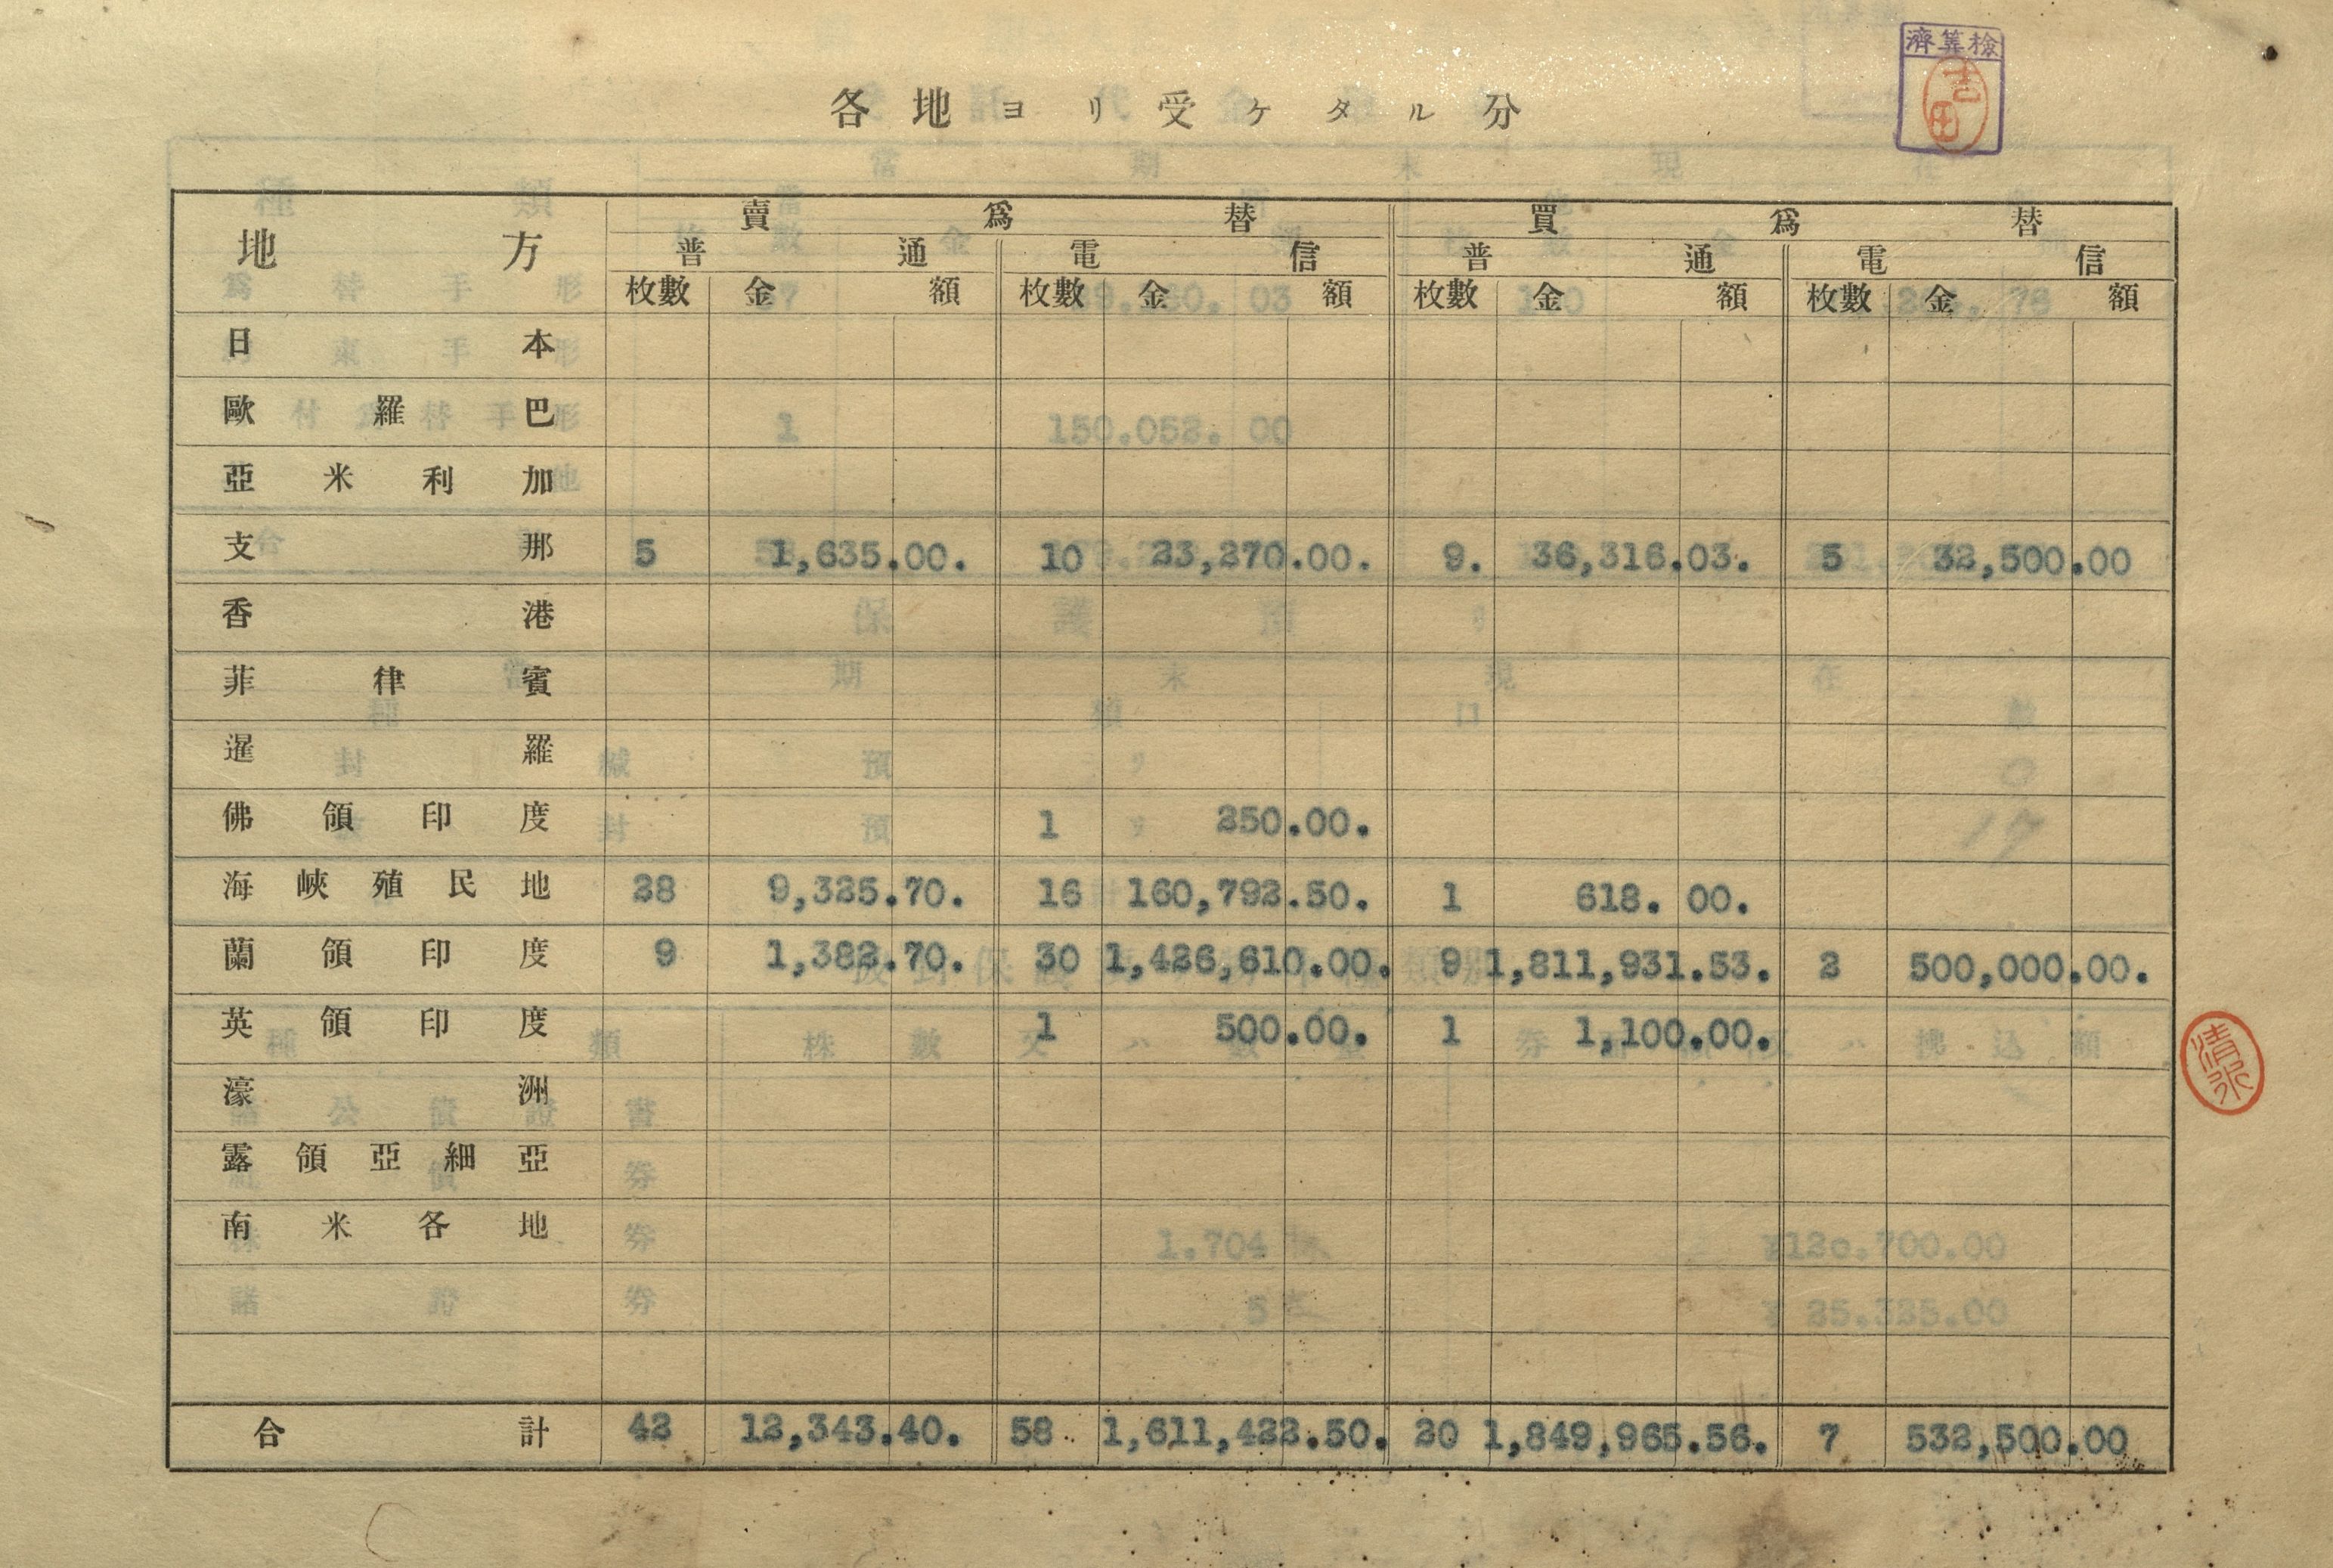 檢算濟
吉田
各地ヨリ受ケタル分
地方 賣爲替 買爲替
普通 電信 普通 電信
枚數 金額 枚數 金額 枚數 金額 枚數 金額
日本
歐羅巴
亞米利加
支那 5 1,635.00. 10 23,270.00. 9. 36,316.03. 5 32,500.00
香港
菲律賓
暹羅
佛領印度 1 250.00.
海峽殖民地 28 9,325.70. 16 160,792.50. 1 618.00.
蘭領印度 9 1,382.70. 30 1,426,610.00. 9 1,811,931.53. 2 500,000.00.
英領印度 1 500.00. 1 1,100.00.
清水
濠洲
露領亞細亞
南米各地
合計 42 12,343.40. 58 1,611,422.50. 20 1,849,965.56. 7 532,500.00